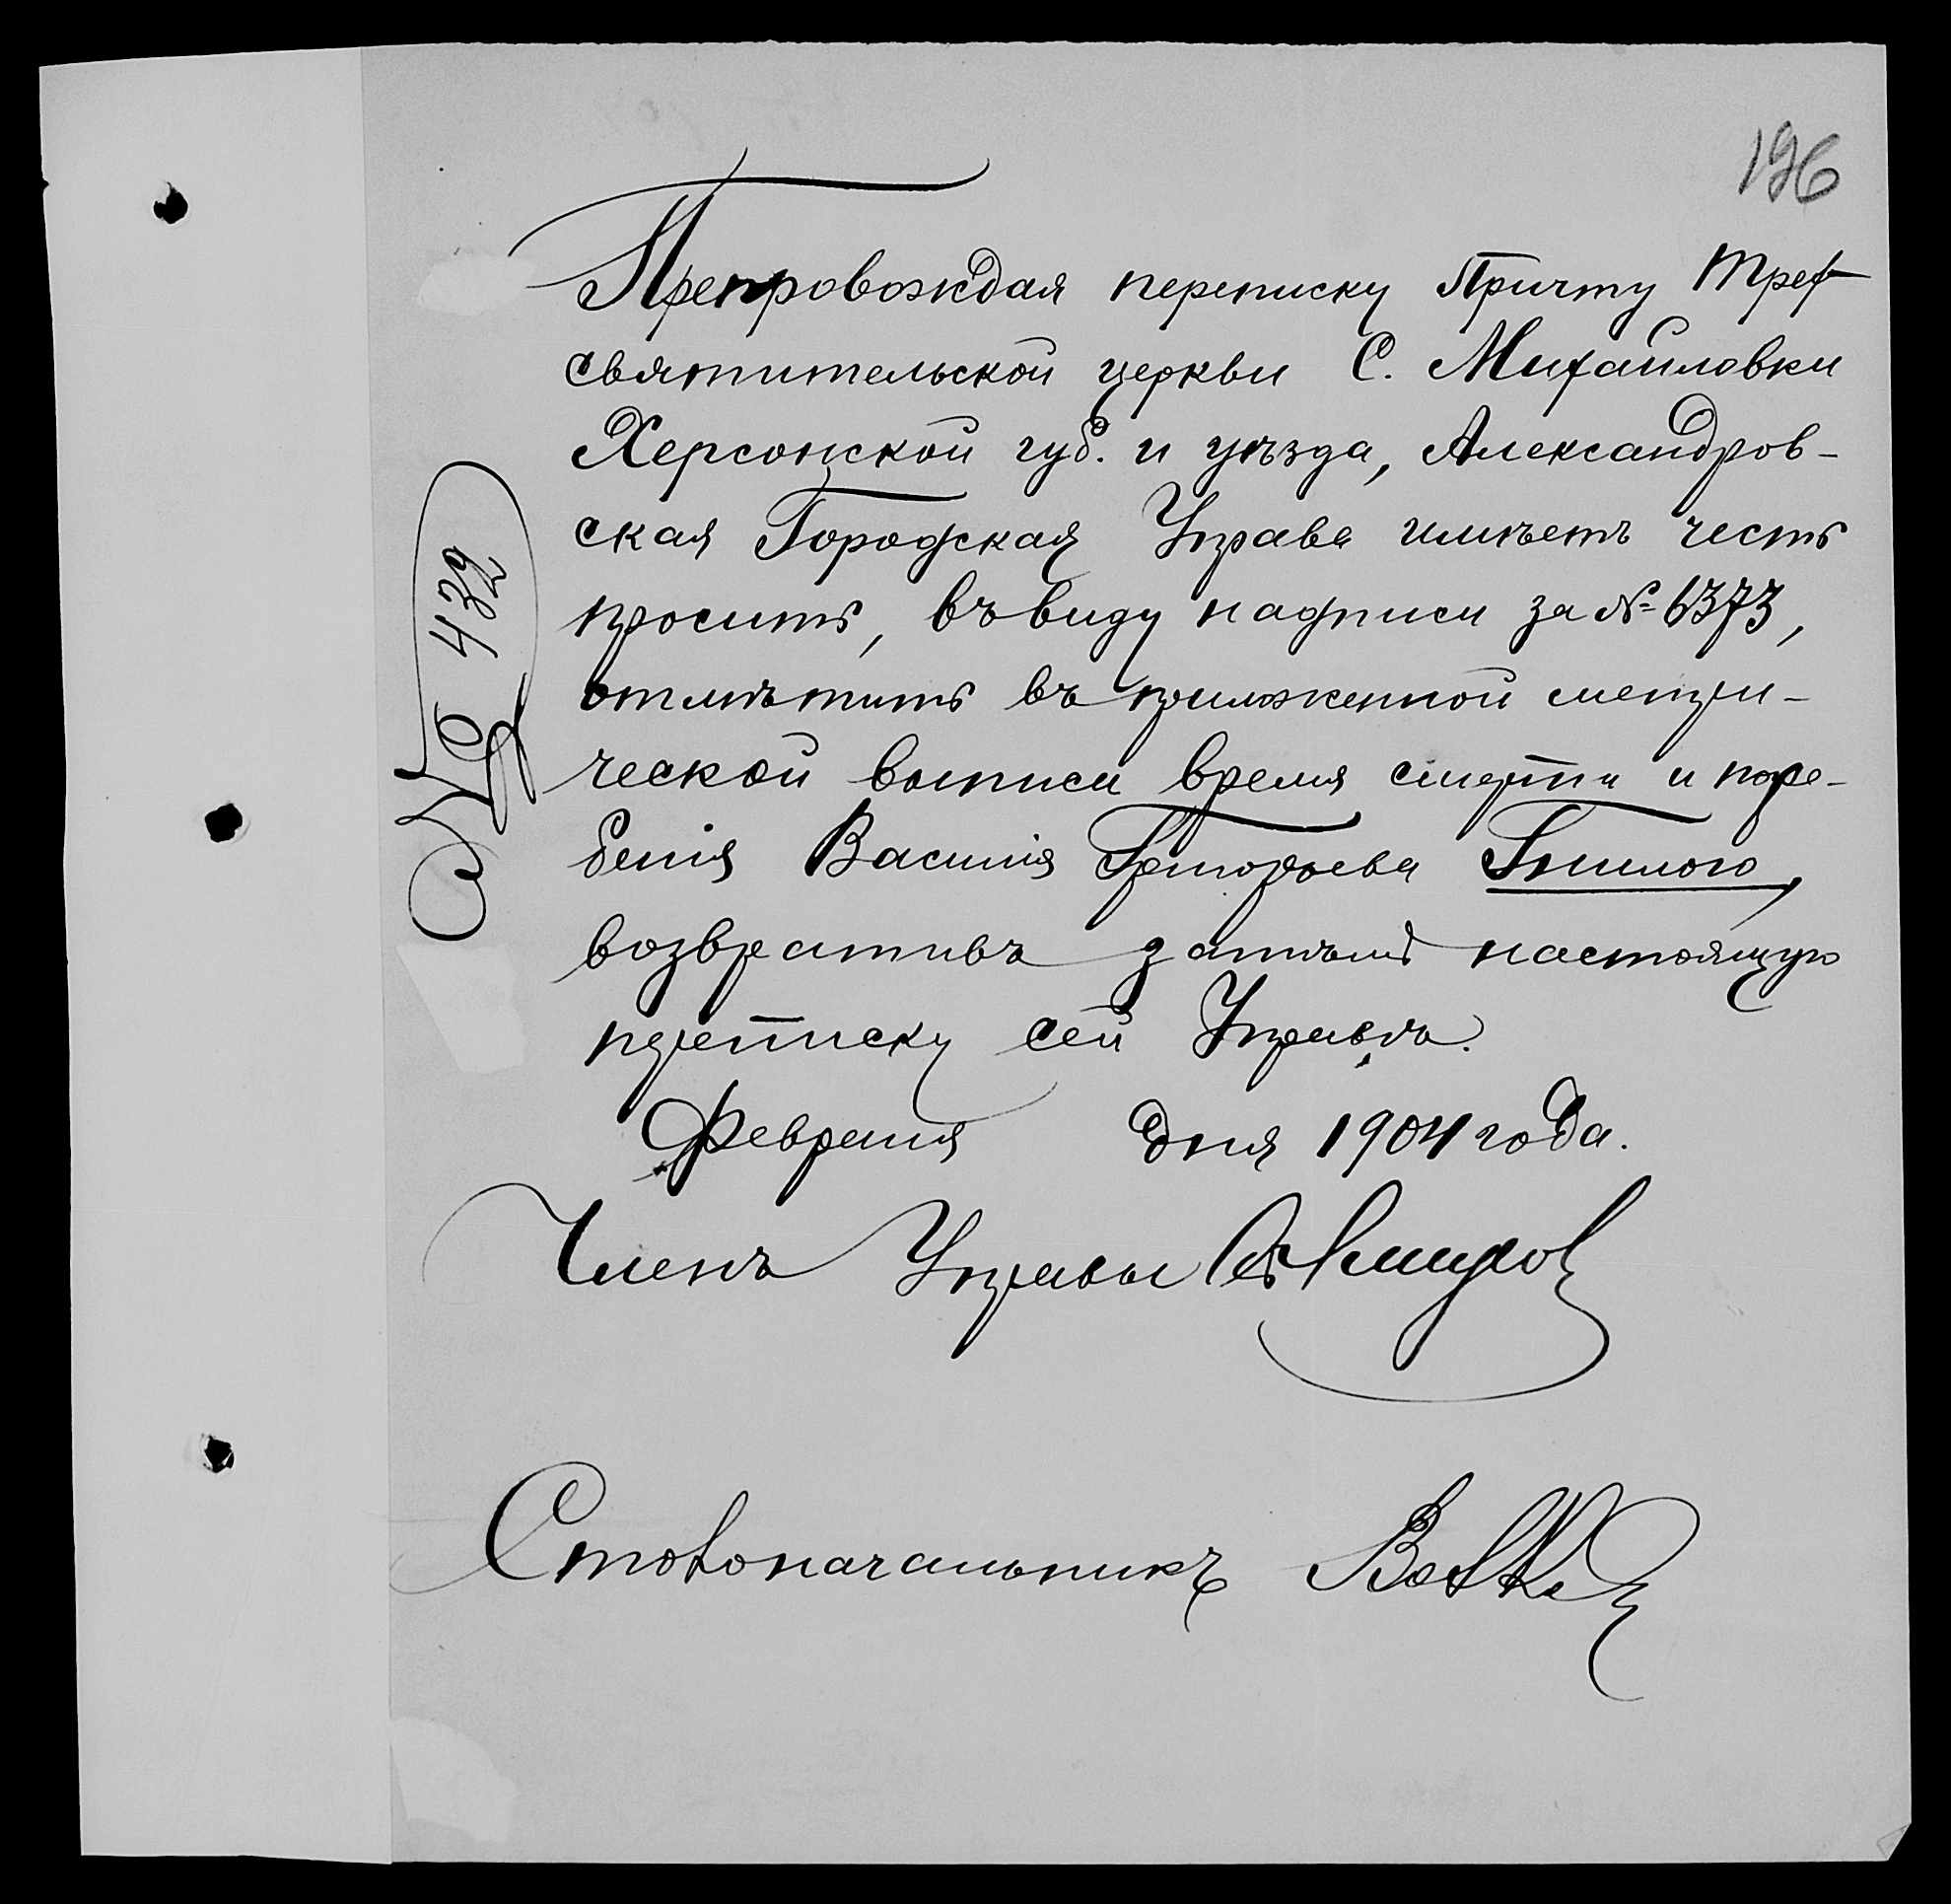 196
Препровождая переписку Причту Трех-
святительской церкви С. Михайловки
Херсонской губ. и уѣзда, Александров-
ская Городская Управа имѣетъ честь
просить, въ виду надписи за № 6373,
отмѣтить въ приложенной метри-
ческой выписи время смерти и погре-
бенія Василія Григорьева Гнилого,
возвративъ затѣмъ настоящую
переписку сей Управѣ.
Февраля дня 1904 года.
Членъ Управы
Столоначальникъ
№ 432